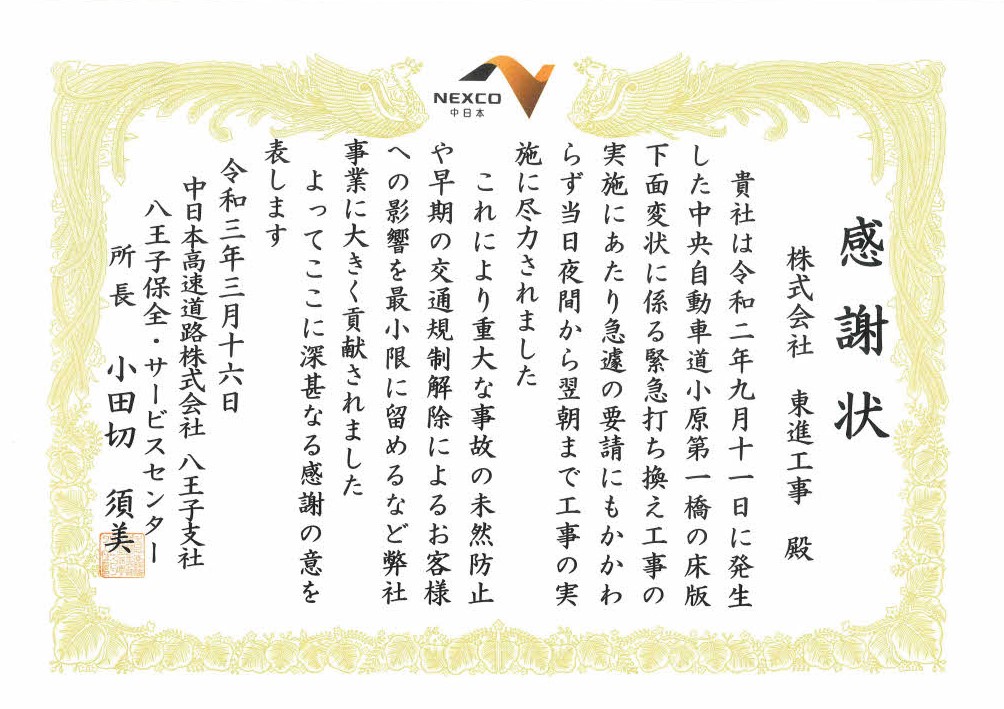 NEXCO
中日本
感謝状
株式会社 東進工事 殿
貴社は令和二年九月十一日に発生
した中央自動車道小原第一橋の床版
下面変状に係る緊急打ち換え工事の
実施にあたり急遽の要請にもかかわ
らず当日夜間から翌朝まで工事の実
施に尽力されました
これにより重大な事故の未然防止
や早期の交通規制解除によるお客様
への影響を最小限に留めるなど弊社
事業に大きく貢献されました
よってここに深甚なる感謝の意を
表します
令和三年三月十六日
中日本高速道路株式会社 八王子支社
八王子保全・サービスセンター
所長 小田切 須美